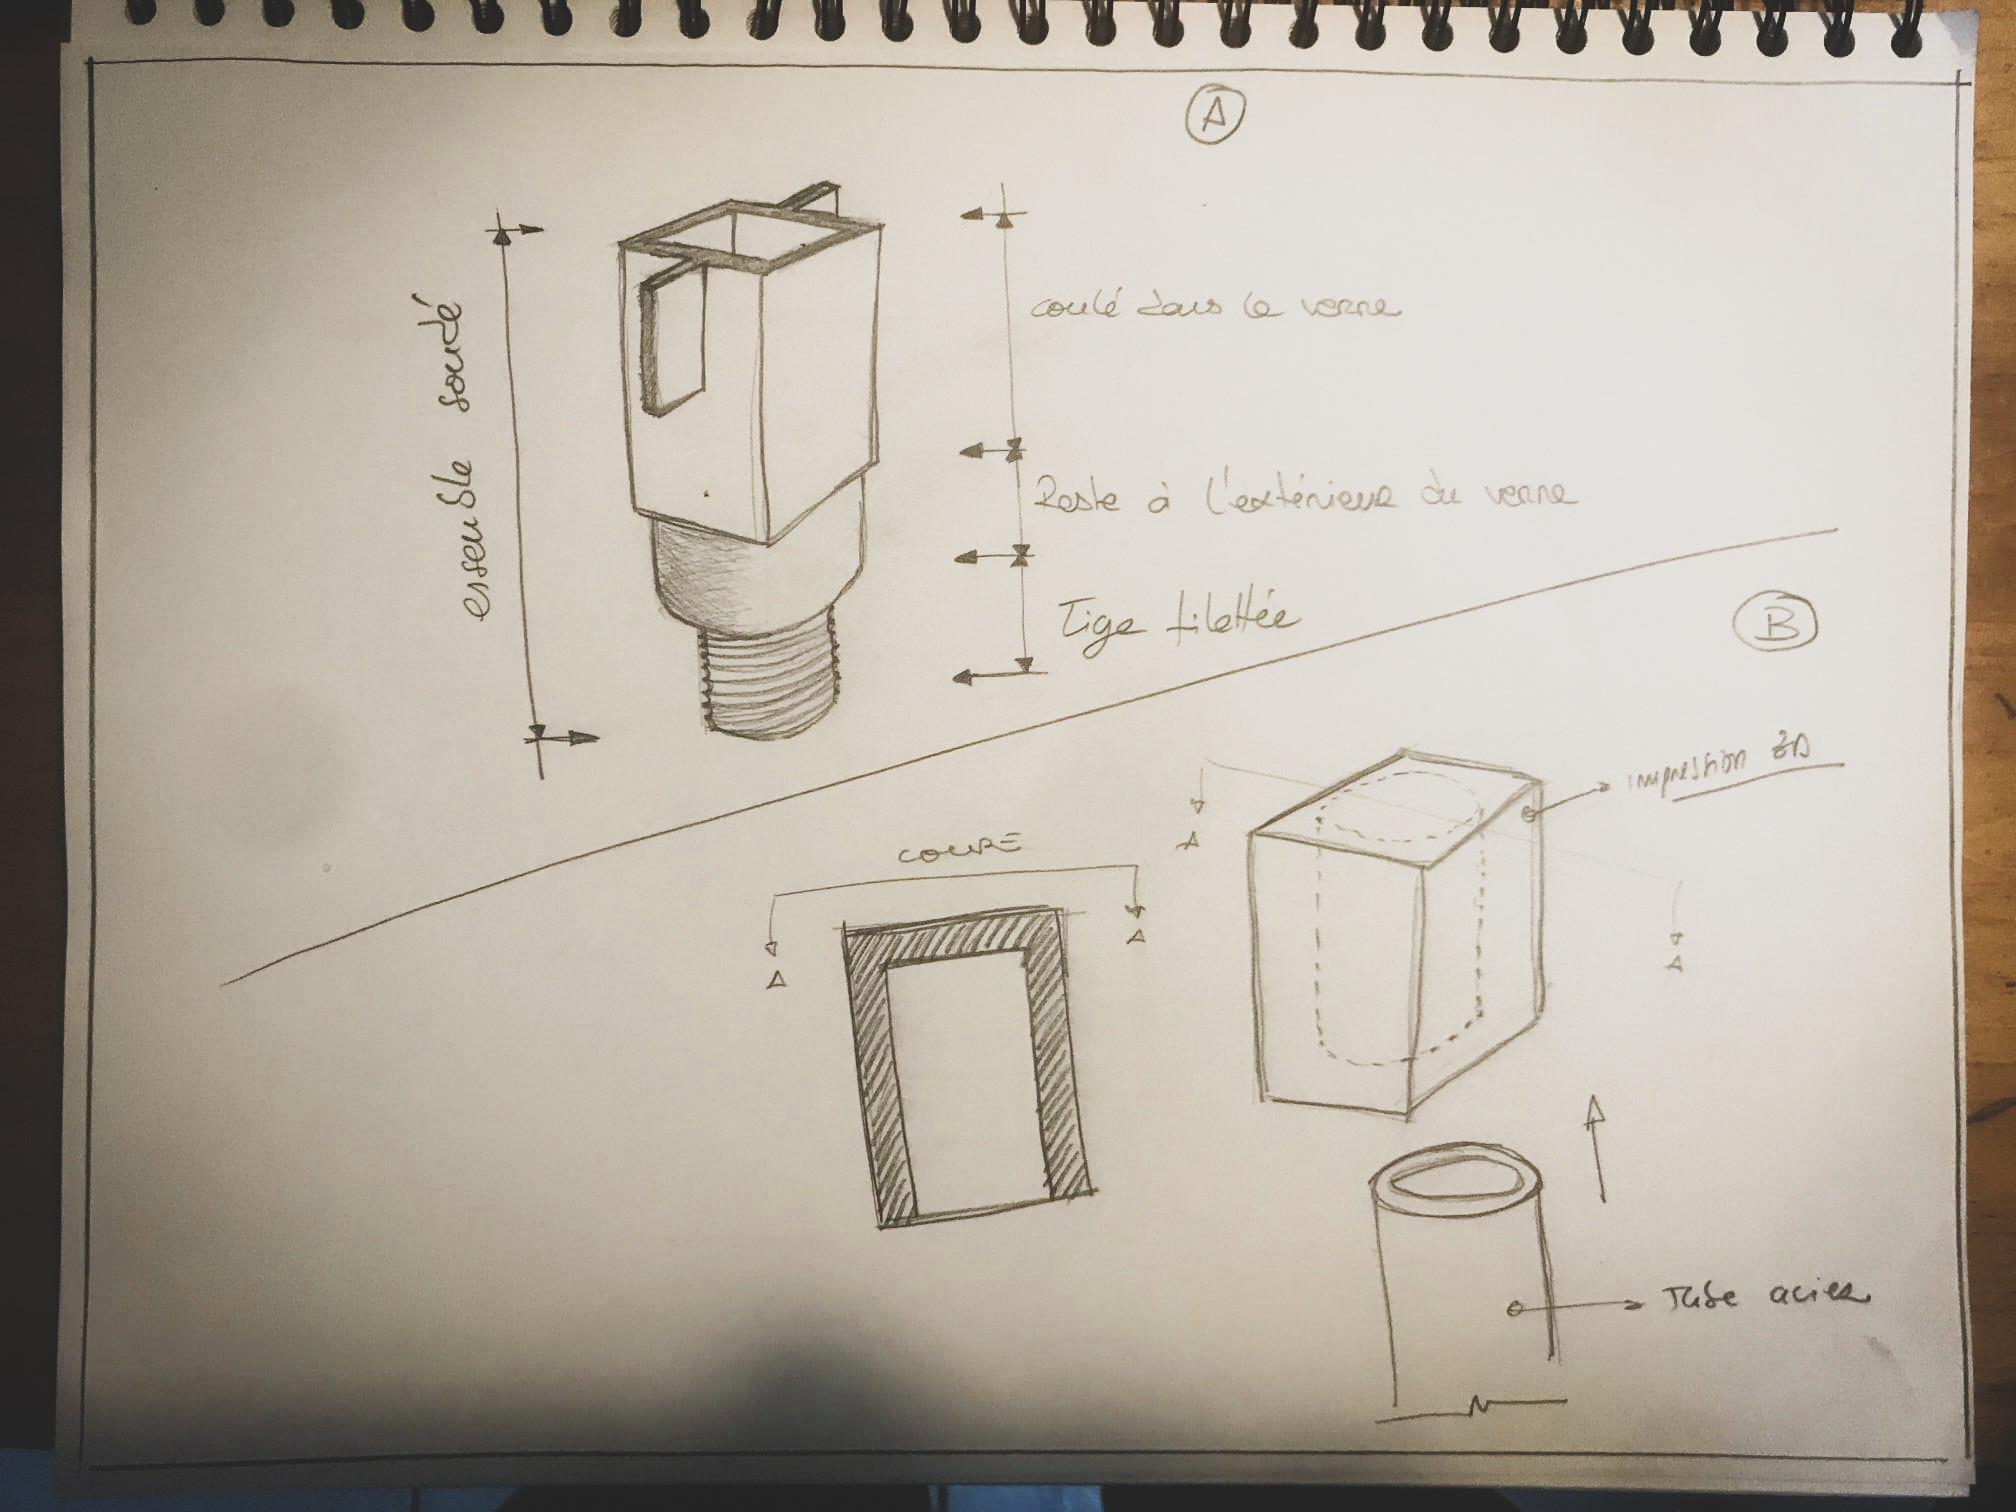 A
ensemble soudé
coulé dans le verre
Reste à l'extérieur du verre
Tige filettée
B
impression 3D
A
COUPE
A
A
A
Tube acier